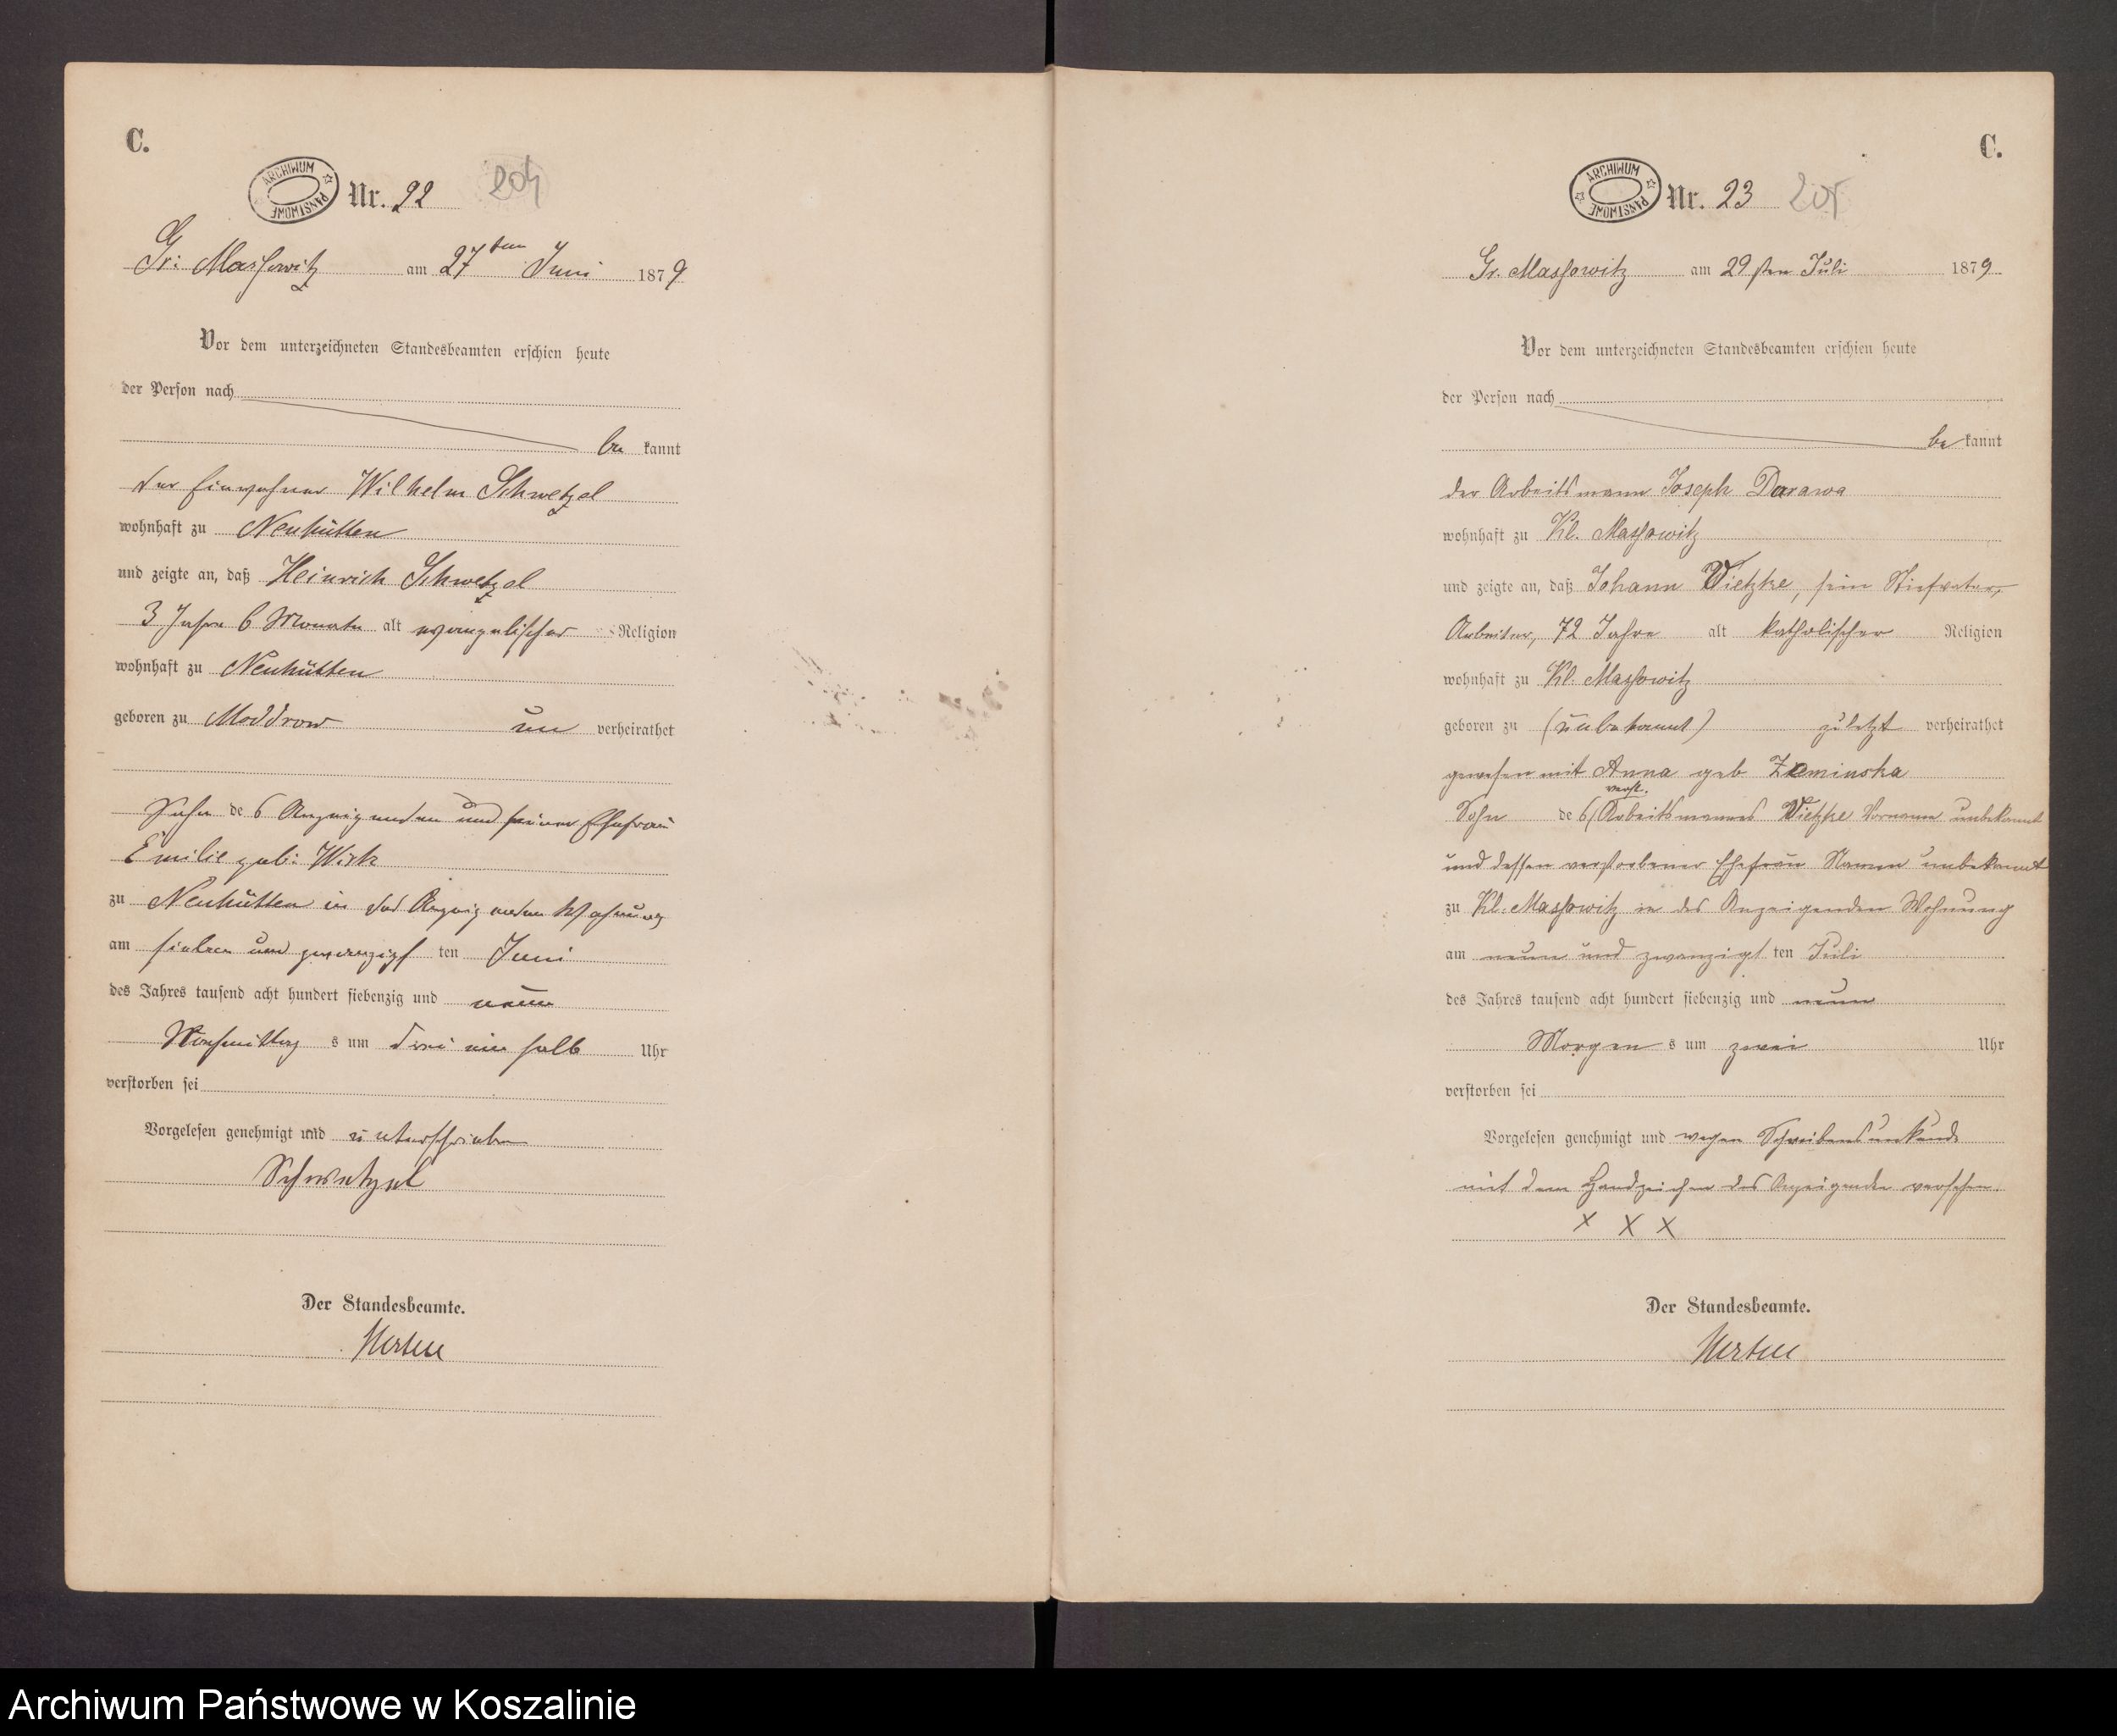 C.
ARCHIWUM PAŃSTWOWE
Nr. 22 204
Gr: Massowitz am 27ten Juni 1879
Vor dem unterzeichneten Standesbeamten erschien heute
der Person nach
be kannt
der Einwohner Wilhelm Schwetzel
wohnhaft zu Neuhütten
und zeigte an, daß Heinrich Schwetzel
3 Jahre 6 Monate alt evangelischer Religion
wohnhaft zu Neuhütten
geboren zu Moddrow un verheirathet
Sohn des Anzeigenden und seiner Ehefrau
Emilie geb:
zu Neuhütten in des Anzeigenden Wohnung
am sieben und zwanzigsten Juni
des Jahres tausend acht hundert siebenzig und neun
Nachmittag s um drei ein halb Uhr
verstorben sei
Vorgelesen genehmigt und unterschrieben
Schwetzel
Der Standesbeamte.
C.
ARCHIWUM PAŃSTWOWE
Nr. 23 205
Gr. Massowitz am 29sten Juli 1879
Vor dem unterzeichneten Standesbeamten erschien heute
der Person nach
be kannt
der Arbeitsmann Joseph Darawa
wohnhaft zu Kl. Massowitz
und zeigte an, daß Johann Vietzke, sein Stiefvater,
Arbeiter, 72 Jahre alt katholischer Religion
wohnhaft zu Kl. Massowitz
geboren zu (unbekannt) zuletzt verheirathet
gewesen mit Anna geb Zeminska
verst.
Sohn des Arbeitsmannes Vietzke Vorname unbekannt
und dessen verstorbener Ehefrau Namen unbekannt
zu Kl. Massowitz in des Anzeigenden Wohnung
am neun und zwanzigsten Juli
des Jahres tausend acht hundert siebenzig und neun
Morgen s um zwei Uhr
verstorben sei
Vorgelesen genehmigt und wegen Schreibensunkunde
mit dem Handzeichen des Anzeigenden versehen.
X X X
Der Standesbeamte.
Archiwum Państwowe w Koszalinie